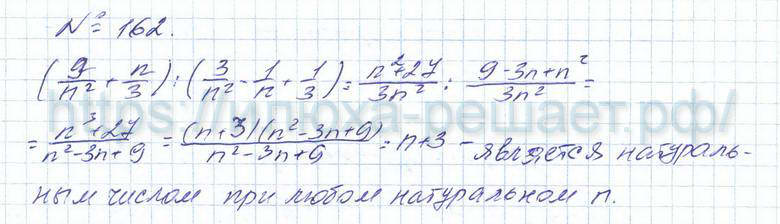 № 162.
(9/n² + n/3) : (3/n² - 1/n + 1/3) = n²+27/3n² : 9-3n+n²/3n² =
= n³+27/n²-3n+9 = (n+3)(n²-3n+9)/n²-3n+9 = n+3 - является натураль-
ным числом при любом натуральном n.
https://илюха-решает.рф/